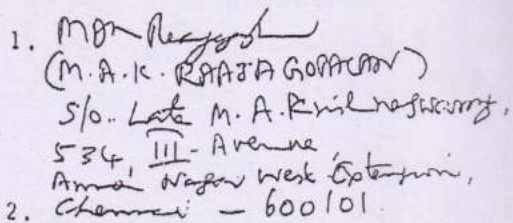 1.
(M.A.K. RAAJAGOPALAN)
S/o. Late M.A. Krishnaswamy,
534, III - Avenue
Anna Nagar West Extension,
2. Chennai - 600101.